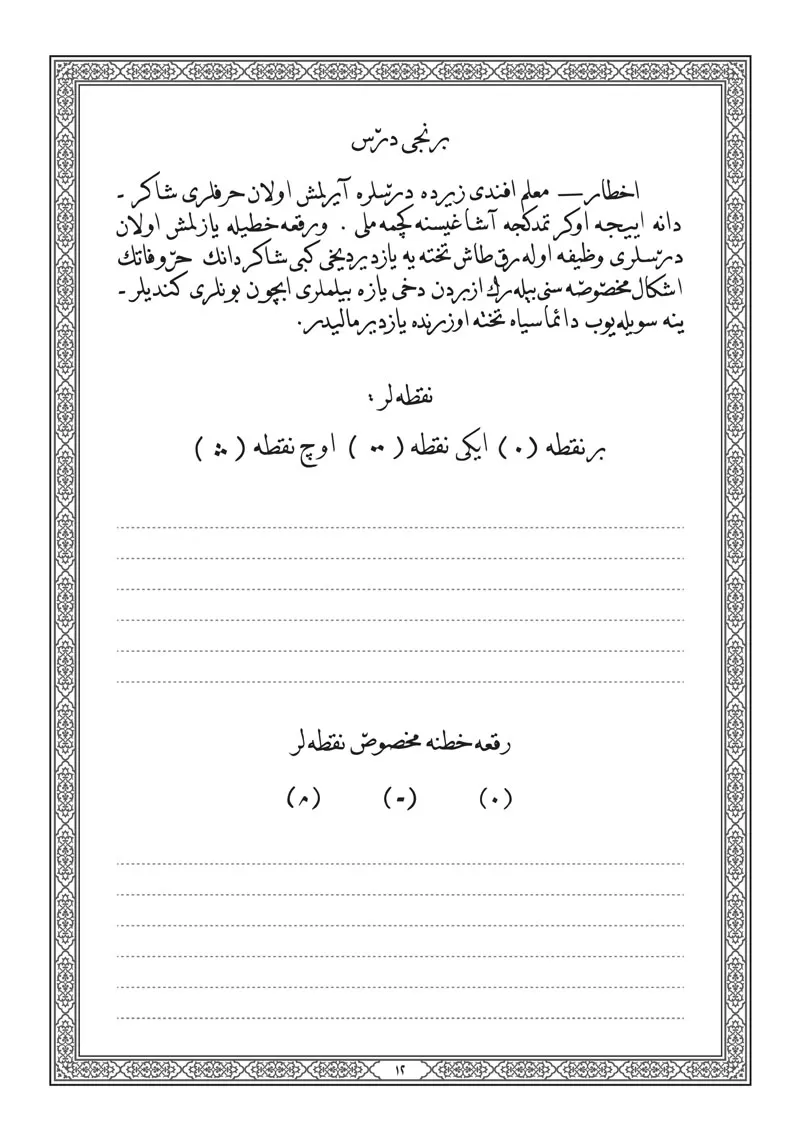 برنجی درس
اخطار — معلم افندی زیرده درسلره آیرلمش اولان حرفلری شاکر -
دانه اییجه اوکرتمدکجه آشاغیسنه کچمه ملی . ورقعه خطیله یازلمش اولان
درسلری وظیفه اوله رق طاش تخته یه یازدیردیغی کبی شاکردانك حروفاتك
اشکال مخصوصه سنی بیله رك ازبردن دخی یازه بیلملری ایچون بونلری کندیلر -
ینه سویله یوب دائما سیاه تخته اوزرنده یازدیرمالیدر.
نقطه لر :
بر نقطه ( ٠ ) ایکی نقطه ( ˙˙ ) اوچ نقطه ( ؞ )
رقعه خطنه مخصوص نقطه لر
( ٠ ) ( - ) ( ^ )
١٢